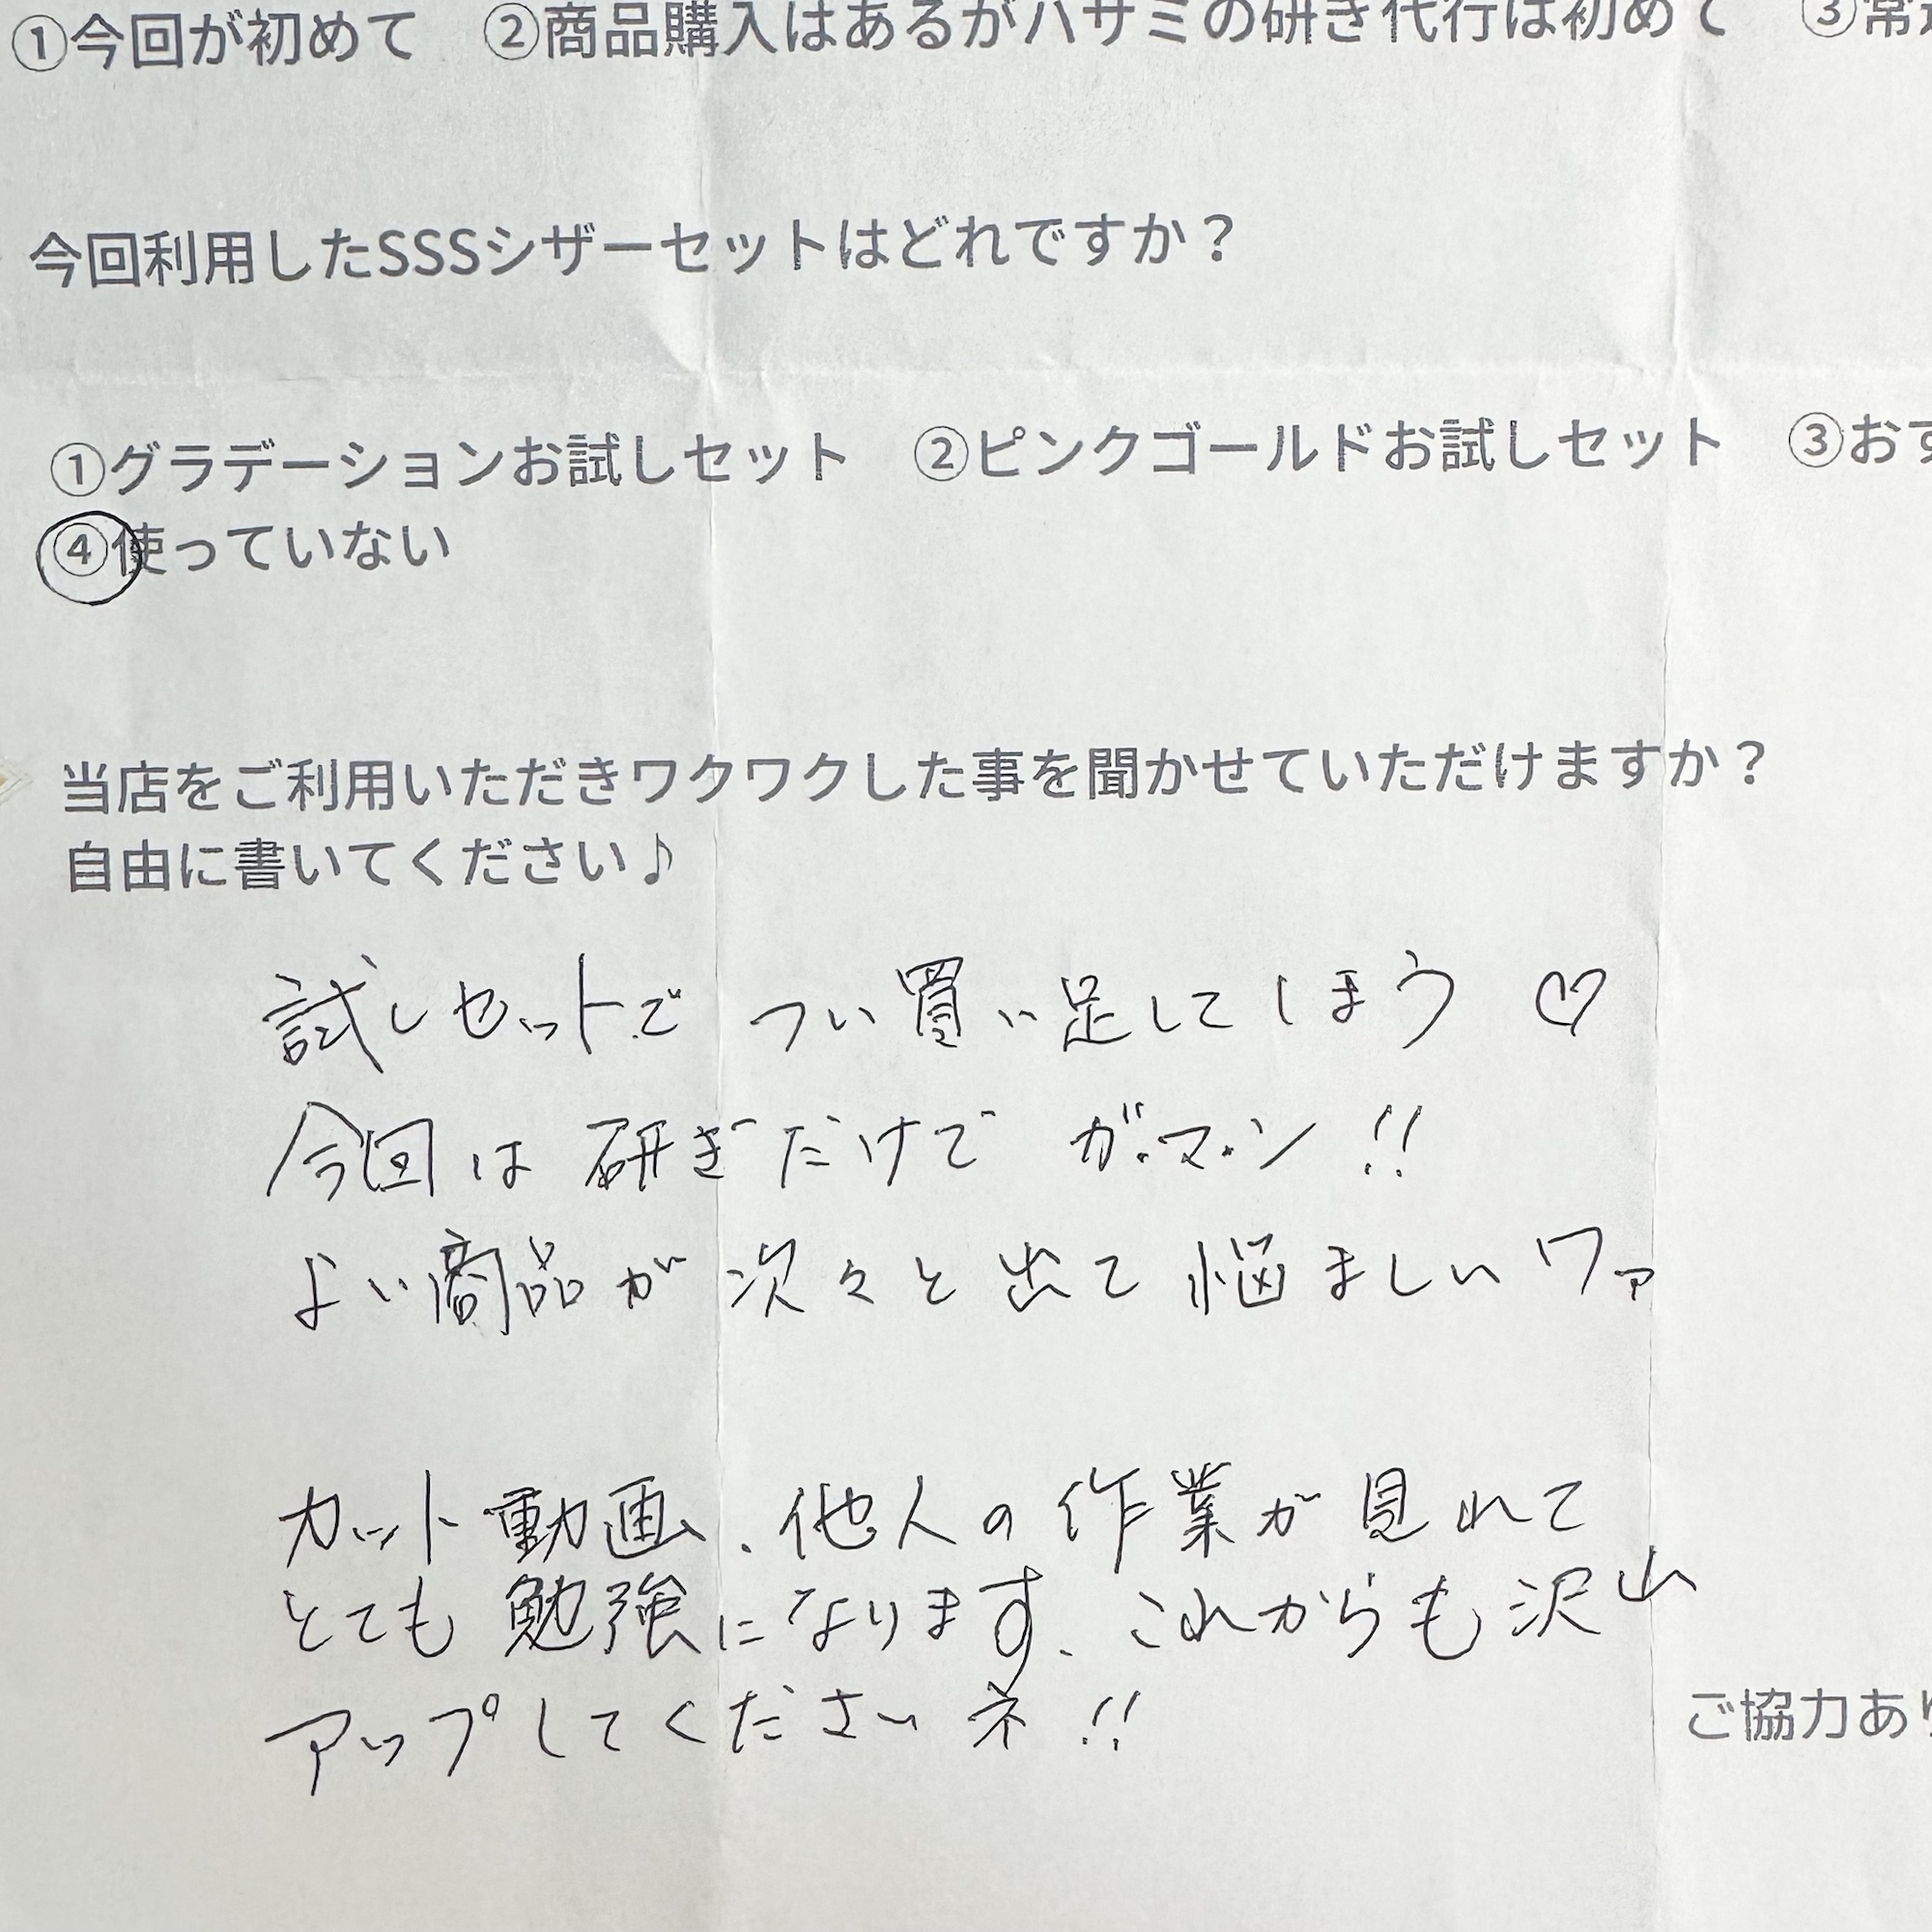 ①今回が初めて ②商品購入はあるがハサミの研ぎ代行は初めて ③常
今回利用したSSSシザーセットはどれですか？
①グラデーションお試しセット ②ピンクゴールドお試しセット ③おす
④使っていない
当店をご利用いただきワクワクした事を聞かせていただけますか？
自由に書いてください♪
試しセットで つい買い足してしまう ♡
今回は 研ぎだけで ガ・マ・ン!!
よい商品が 次々と出て 悩ましいワァ
カット動画、他人の作業が見れて
とても勉強になります、これからも沢山
アップしてくださいネ!!
ご協力あり